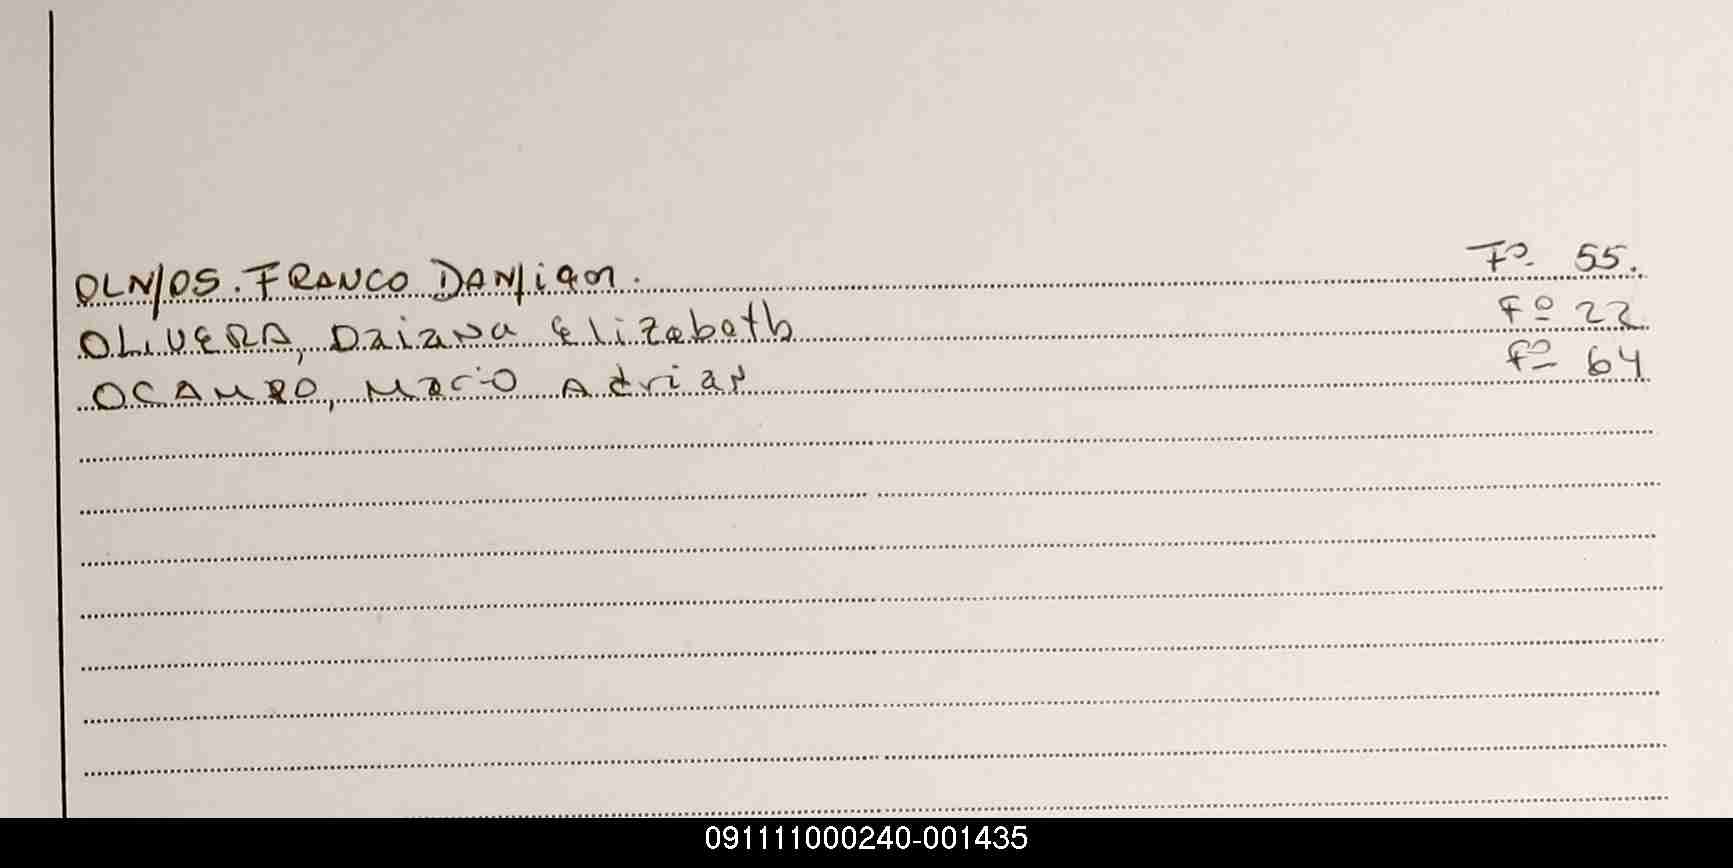 OLMOS. FRANCO DAMian. Fº 55.
OLIVERA, Daiana Elizabeth Fº 22
OCAMPO, Mario Adrian Fº 64
091111000240-001435